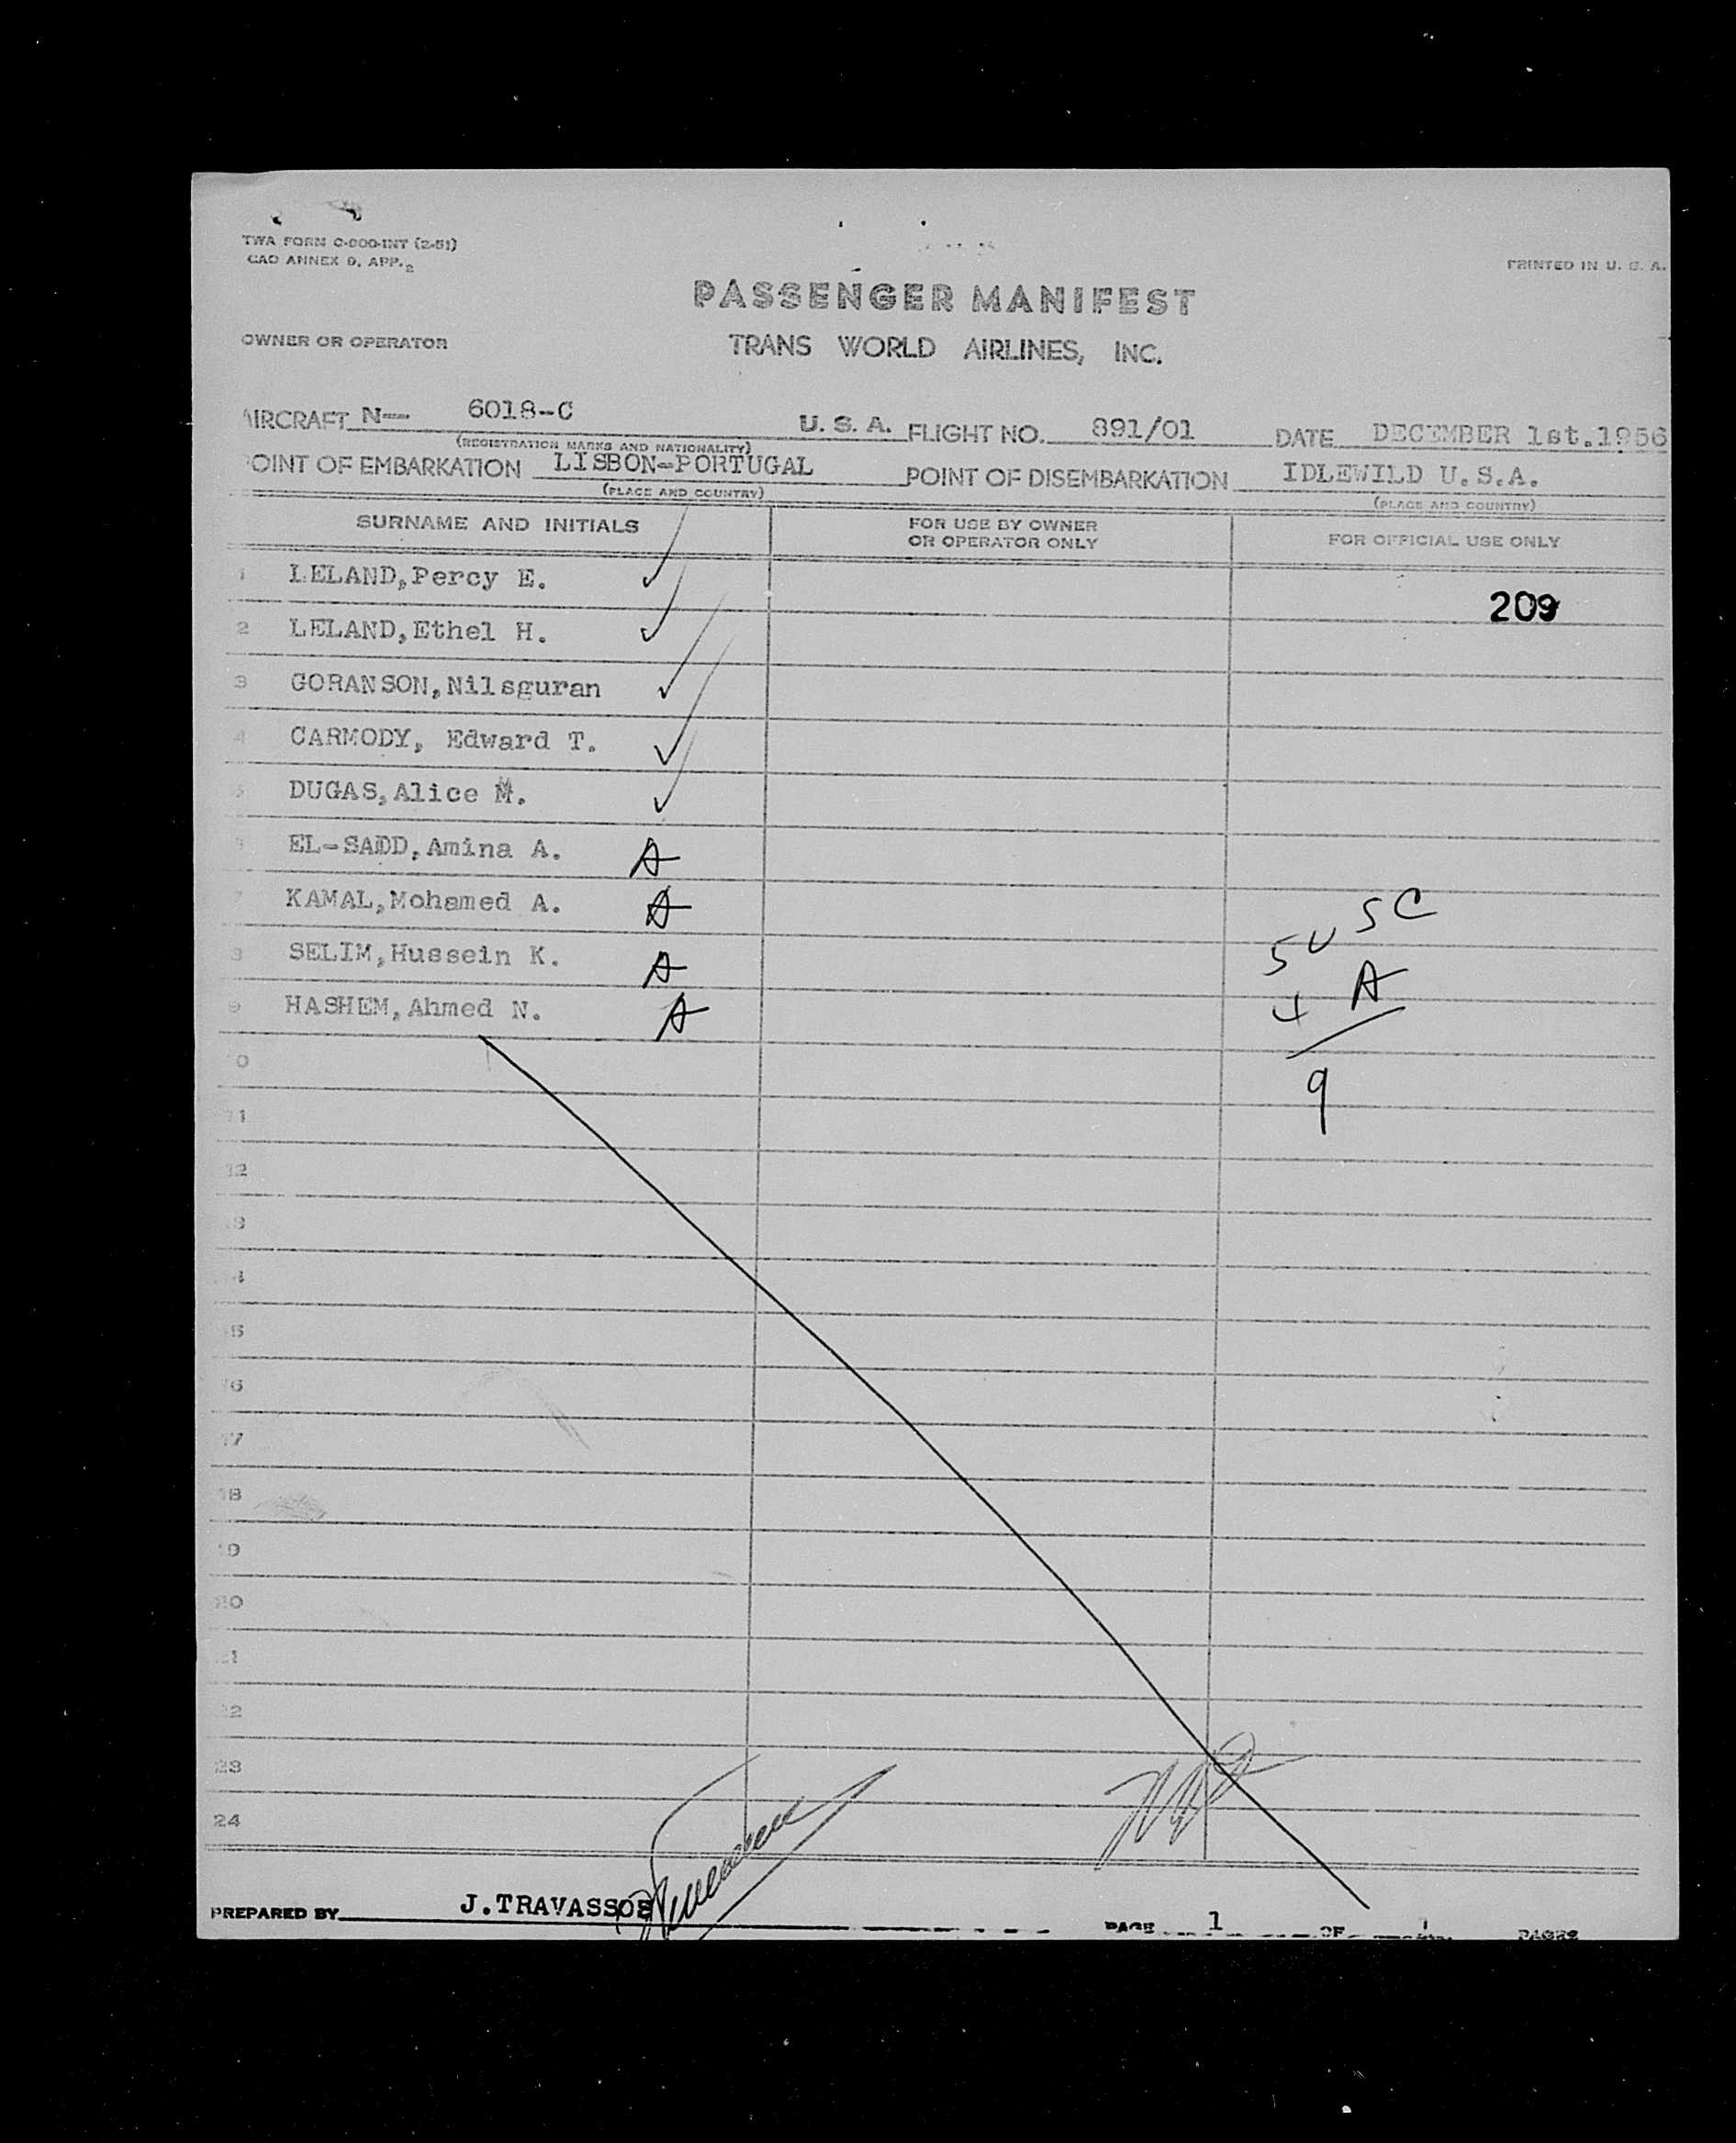 TWA FORM C-800-INT (2-51)
CAO ANNEX 9, APP. 2
PRINTED IN U. S. A.
PASSENGER MANIFEST
OWNER OR OPERATOR
TRANS WORLD AIRLINES, INC.
AIRCRAFT N— 6018-C U. S. A. FLIGHT NO. 891/01 DATE DECEMBER 1st.1956
(REGISTRATION MARKS AND NATIONALITY)
POINT OF EMBARKATION LISBON-PORTUGAL POINT OF DISEMBARKATION IDLEWILD U.S.A.
(PLACE AND COUNTRY) (PLACE AND COUNTRY)
SURNAME AND INITIALS FOR USE BY OWNER OR OPERATOR ONLY FOR OFFICIAL USE ONLY
1 LELAND,Percy E. ✓
209
2 LELAND,Ethel H. ✓
3 GORANSON,Nilsguran ✓
4 CARMODY, Edward T. ✓
5 DUGAS,Alice M. ✓
EL-SADD,Amina A. A
7 KAMAL,Mohamed A. A
8 SELIM,Hussein K. A
5 U S C
9 HASHEM,Ahmed N. A
4 A
10
9
11
12
13
14
15
16
17
18
19
20
21
22
23
24
PREPARED BY J.TRAVASSOS PAGE 1 OF 1 PAGES